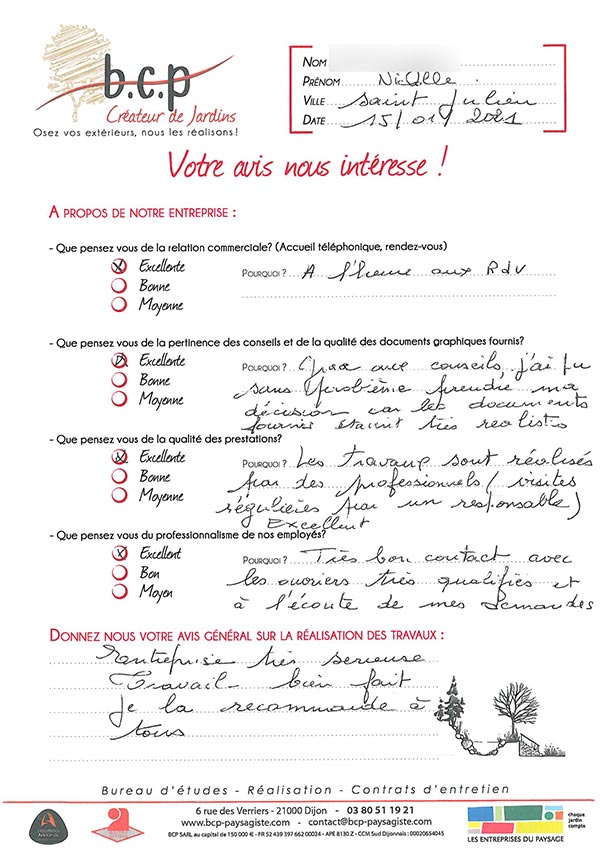 b.c.p
Créateur de Jardins
Osez vos extérieurs, nous les réalisons !
NOM
PRÉNOM Nicolle
VILLE Saint Julien
DATE 15/01/2021
Votre avis nous intéresse !
A PROPOS DE NOTRE ENTREPRISE :
- Que pensez vous de la relation commerciale? (Accueil téléphonique, rendez-vous)
Excellente
POURQUOI ? A l'heure aux RdV
Bonne
Moyenne
- Que pensez vous de la pertinence des conseils et de la qualité des documents graphiques fournis?
Excellente
POURQUOI ? Grace aux conseils j'ai pu
Bonne
sans problème prendre ma
Moyenne
décision car les documents
fournis étaient très realistes
- Que pensez vous de la qualité des prestations?
Excellente
POURQUOI ? Les travaux sont réalisés
Bonne
par des professionnels (visites
Moyenne
régulières par un responsable)
Excellent
- Que pensez vous du professionnalisme de nos employés?
Excellent
POURQUOI ? Très bon contact avec
Bon
les ouvriers très qualifiés et
Moyen
à l'écoute de mes demandes
DONNEZ NOUS VOTRE AVIS GÉNÉRAL SUR LA RÉALISATION DES TRAVAUX :
Entreprise très serieuse
Travail bien fait
je la recommande à
tous
Bureau d'études - Réalisation - Contrats d'entretien
6 rue des Verriers - 21000 Dijon - 03 80 51 19 21
www.bcp-paysagiste.com - contact@bcp-paysagiste.com
BCP SARL au capital de 150 000 € - FR 52 439 397 662 00024 - APE 8130 Z - CCM Sud Dijonnais : 00020654045
LES ENTREPRISES DU PAYSAGE
chaque
jardin
compte